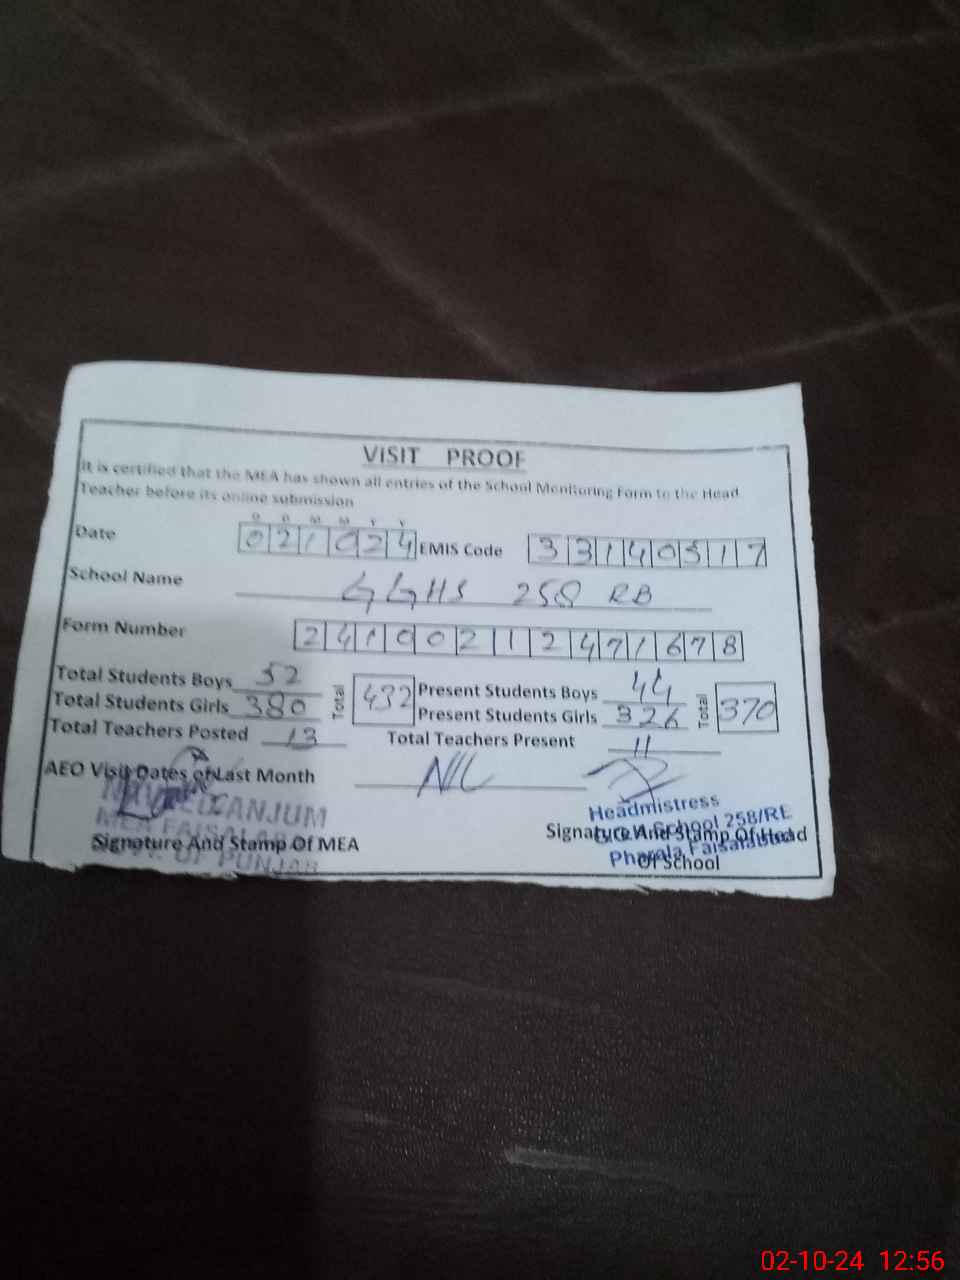 VISIT PROOF
It is certified that the MEA has shown all entries of the School Monitoring Form to the Head
Teacher before its online submission
D D M M Y Y
Date 021024 EMIS Code 33140517
School Name GGHS 258 RB
Form Number 24100212471678
Total Students Boys 52 Total 432 Present Students Boys 44 Total 370
Total Students Girls 380 Present Students Girls 326
Total Teachers Posted 13 Total Teachers Present 11
AEO Visit Dates of Last Month NIL
ANJUM
MEA FAISALABAD
OF PUNJAB
Signature And Stamp Of MEA
Headmistress
School 258/RB
Pharala Faisalabad
Signature And Stamp Of Head
Of School
02-10-24 12:56